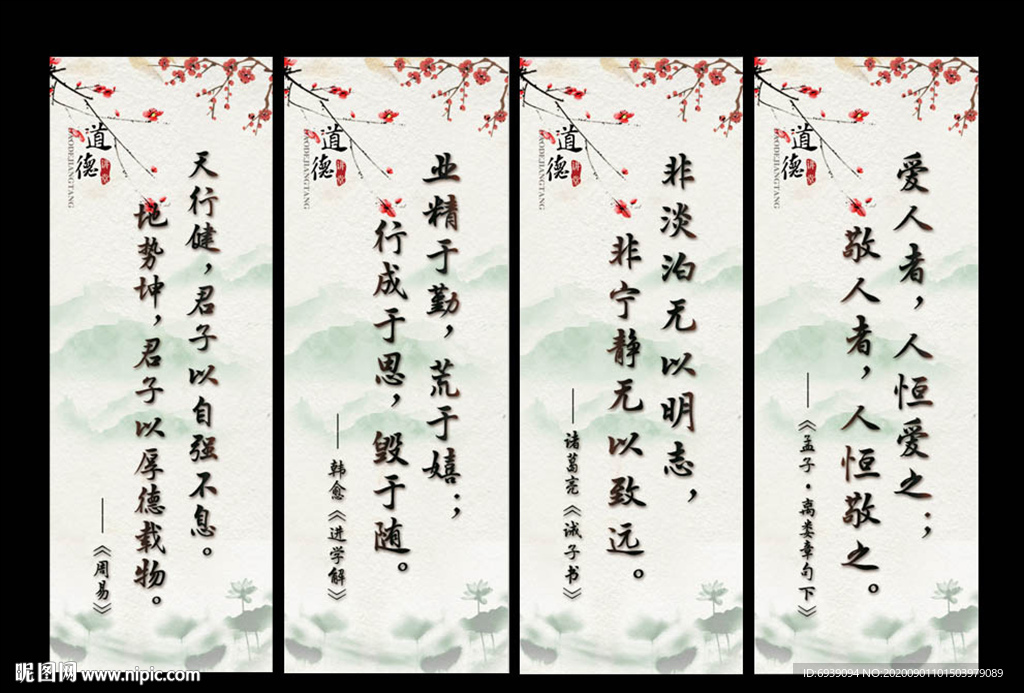 道德
讲堂
DAODEJIANGTANG
天行健，君子以自强不息。
地势坤，君子以厚德载物。
——《周易》
道德
讲堂
DAODEJIANGTANG
业精于勤，荒于嬉；
行成于思，毁于随。
——韩愈《进学解》
道德
讲堂
DAODEJIANGTANG
非淡泊无以明志，
非宁静无以致远。
——诸葛亮《诫子书》
道德
讲堂
DAODEJIANGTANG
爱人者，人恒爱之；
敬人者，人恒敬之。
——《孟子·离娄章句下》
昵图网 www.nipic.com
ID:6939094 NO:20200901101503979089